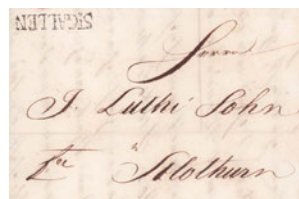 ST GALLEN
Herrn
J. Lüthi Sohn
in
Solothurn